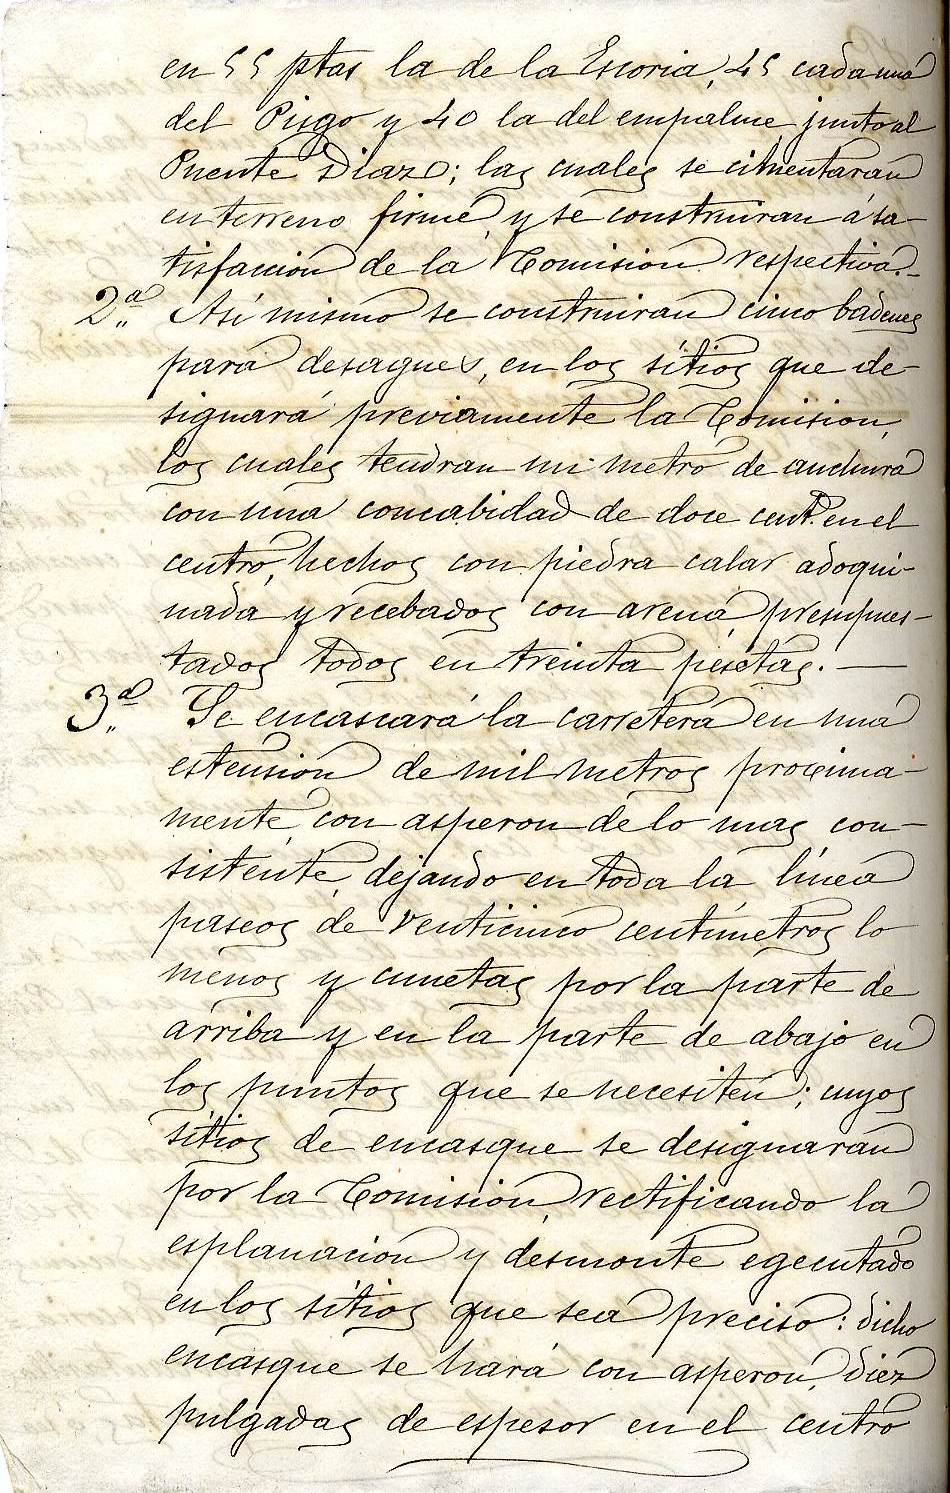 en 55 ptas la de la Escoria, 45 cada una
del Pisgo y 40 la del empalme junto al
Puente Diazo; las cuales se cimentaran
en terreno firme, y se construiran á sa-
tisfacción de la Comision respectiva.-
2.ª Así mismo se construiran cinco badenes
para desagues, en los sitios que de-
signará previamente la Comision,
los cuales tendran un metro de anchura
con una concabidad de doce cent. en el
centro, hechos con piedra calar adoqui-
nada y recebados con arena, presupues-
tados todos en treinta pesetas. —
3.ª Se encascará la carretera en una
estension de mil metros proxima-
mente, con asperon de lo mas con-
sistente, dejando en toda la línea
paseos de venticinco centímetros lo
menos y cunetas por la parte de
arriba y en la parte de abajo en
los puntos que se necesiten; cuyos
sitios de encasque se designaran
por la Comision, rectificando la
esplanacion y desmonte egecutado
en los sitios que sea preciso: dicho
encasque se hará con asperon, diez
pulgadas de espesor en el centro